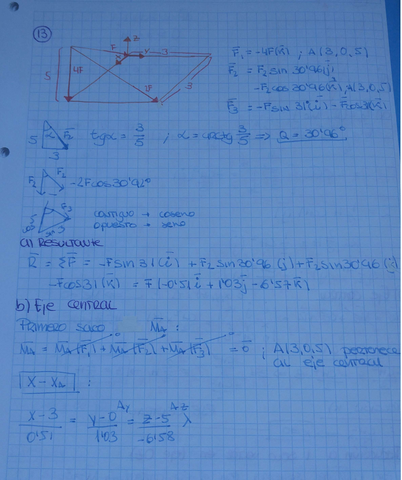 13
z
F
Y
3
5
4F
3
F̄₁ = -4F(k̄) ; A(3,0,5)
F̄₂ = F₂ sin 30'96(j̄)
-F₂cos30'96(k̄), A(3,0,5)
F̄₃ = -F sin 31(ī) - F cos31(k̄)
5
α
F₂
3
tgα = 3/5 ; α = arctg 3/5 ⇒ α = 30'96°
F₂
-2Fcos30'96°
contiguo → coseno
opuesto → seno
a) Resultante
R̄ = ΣF̄ = -Fsin31(ī) + F₂ sin30'96(j̄) + F₂ sin30'96(j)
-Fcos31(k̄) = F(-0'51ī + 1'03j - 6'57k̄)
b) Eje central
Primero saco M̄ₐ :
M̄ₐ = M̄ₐ(F₁) + M̄ₐ(F₂) + M̄ₐ(F₃) = 0̄ ; A(3,0,5) pertenece
al eje central
X - Xₐ :
(x-3)/0'51 = (y-0)/1'03 = (z-5)/-6'58 λ